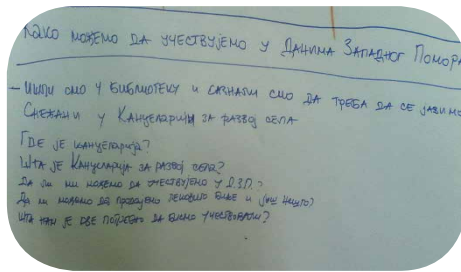 Како можемо да учествујемо у Данима Западног Помора
- Ишли смо у библиотеку и сазнали смо да треба да се јавимо
Снежани у Канцеларији за развој села
Где је канцеларија?
Шта је Канцеларија за развој села?
Да ли ми можемо да учествујемо у Д.З.П.?
Да ли можемо да продајемо и још нешто?
Шта нам је све потребно да бисмо учествовали?